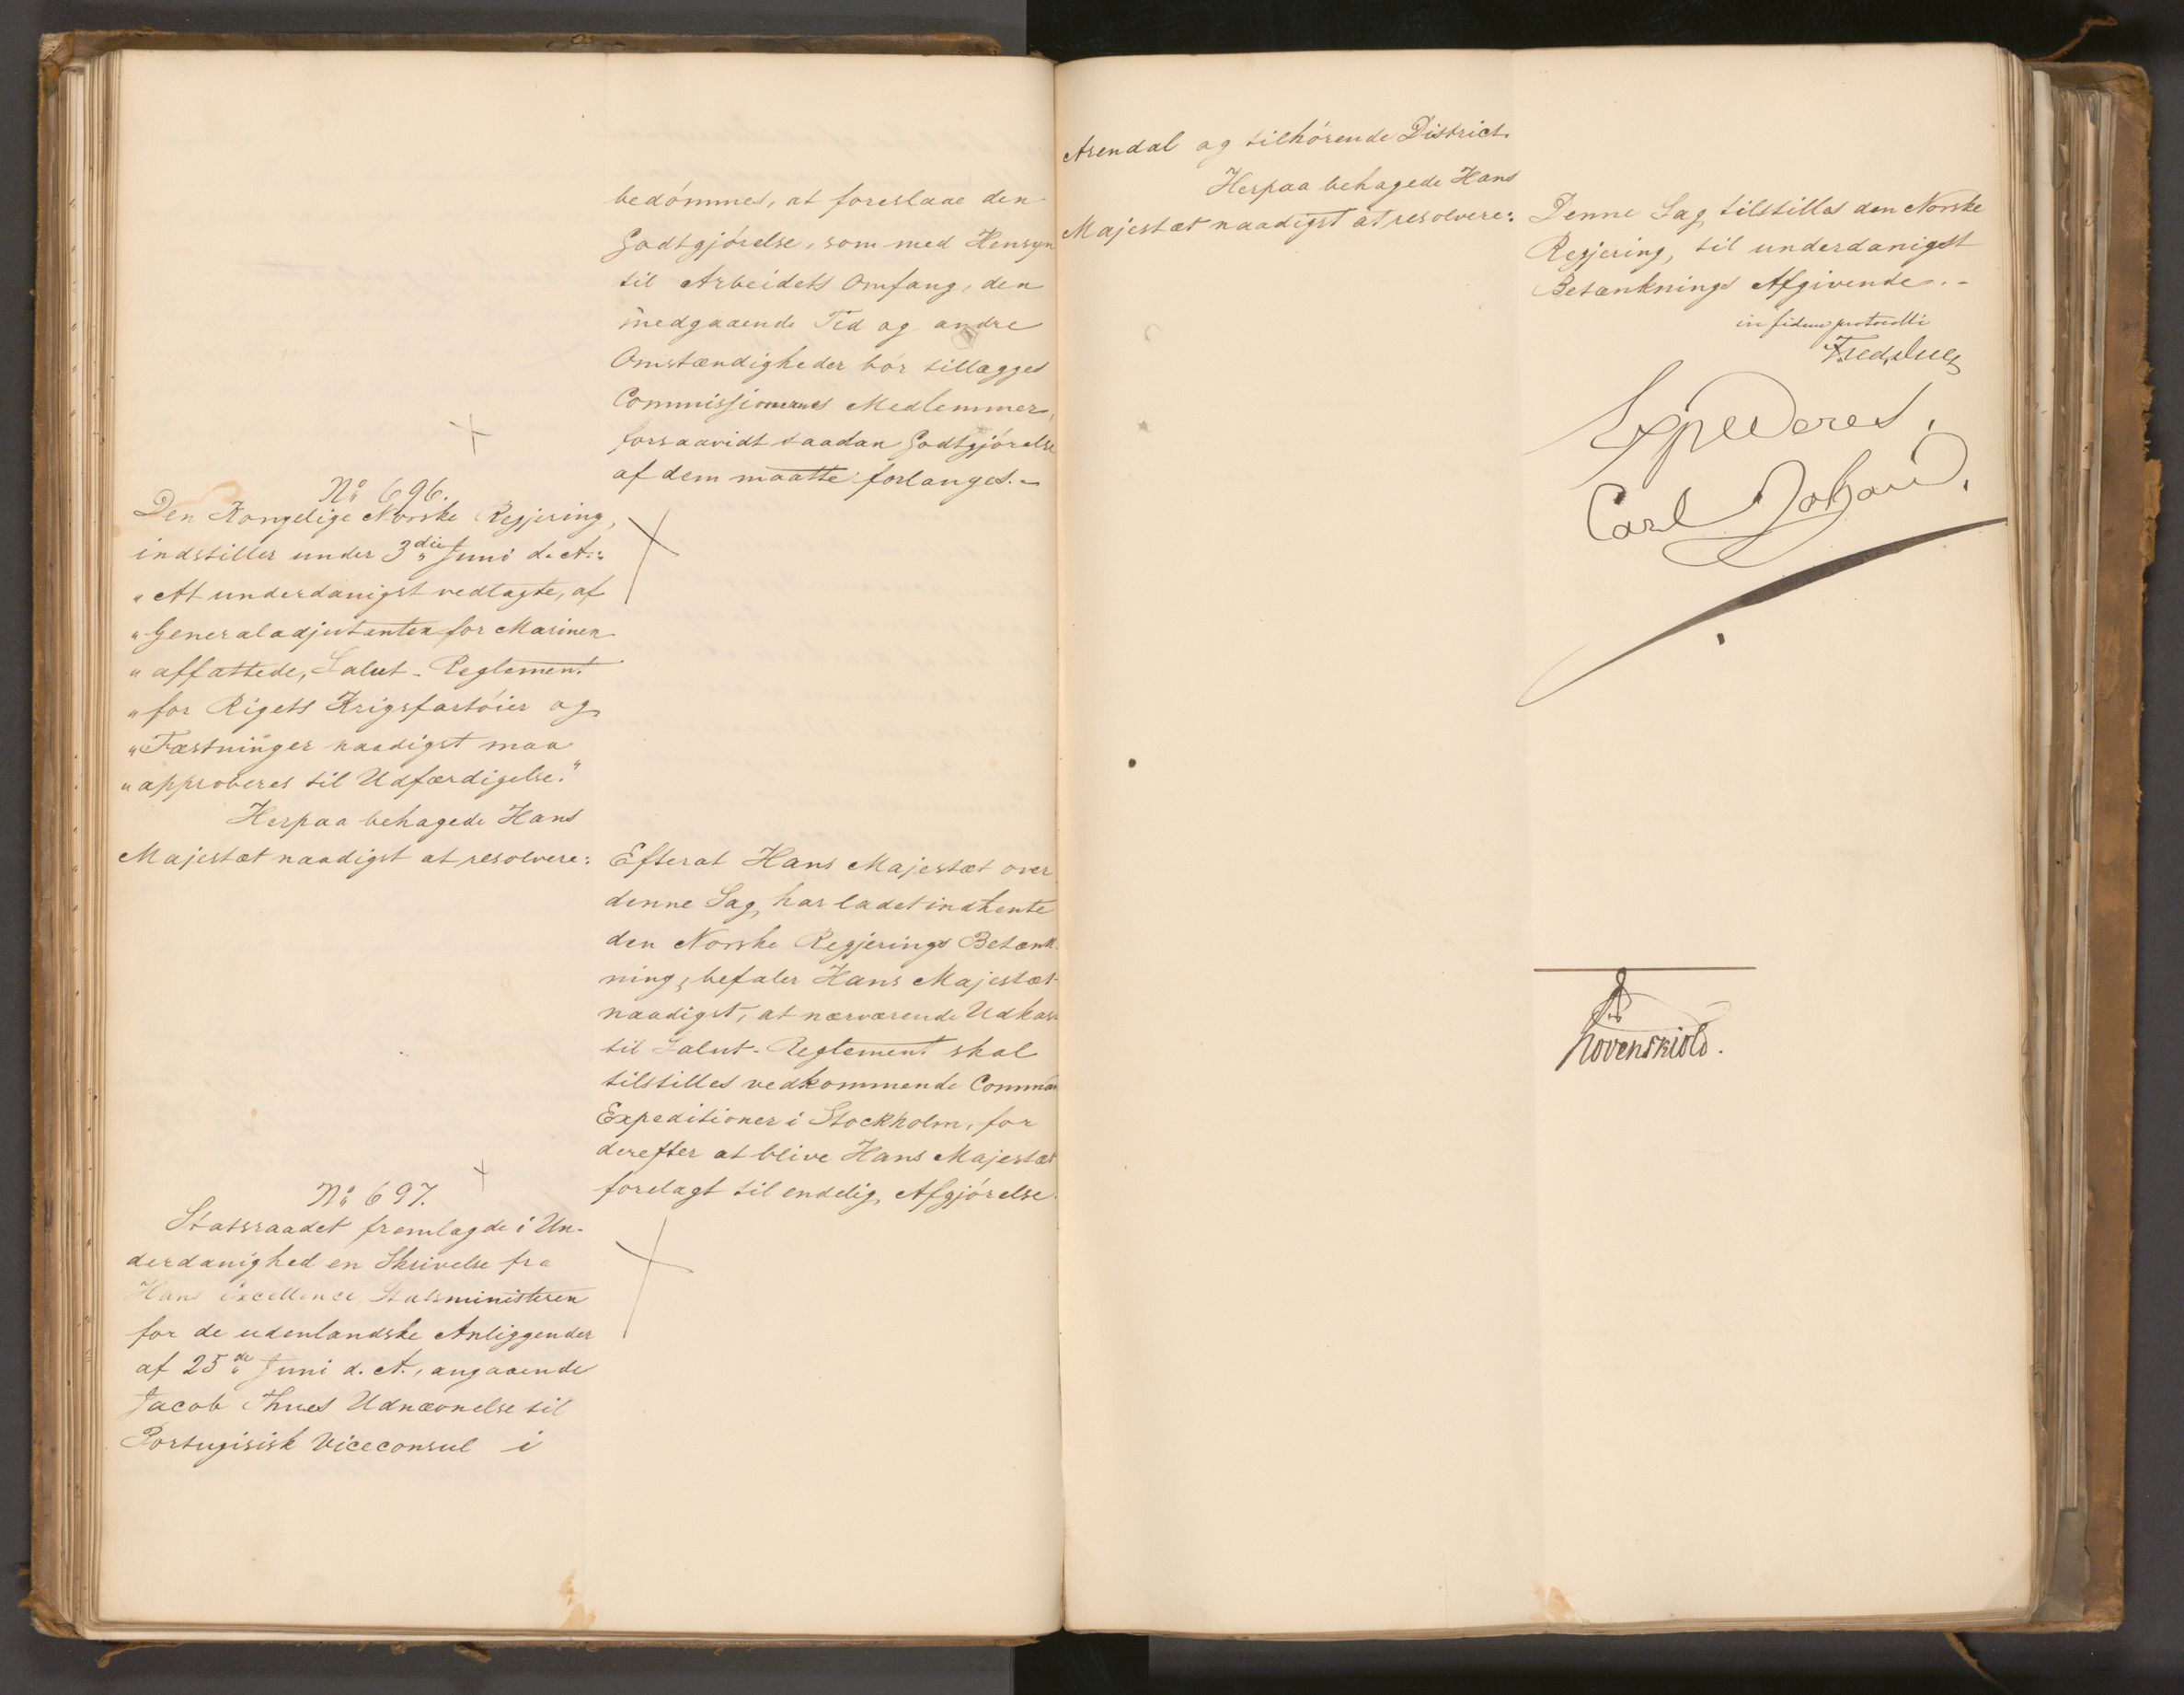 bedömmes, at foreslaae den
Godtgjörelse, som med Hensyn
til Arbeidets Omfang, den
medgaaende Tid og andre
Omstændigheder bör tillægges
Commissionernes Medlemmer,
forsaavidt saadan Godtgjörelse
af dem maatte forlanges.-
No 696.
Den Kongelige Norske Regjering,
indstiller under 3die Juni d. A.:
"At underdanigst vedlagte, af
"Generaladjutanten for Marinen
"affattede, Salut-Reglement
"for Rigets Krigsfartöier og
"Fæstninger naadigst maa
"approberes til Udfærdigelse."
Herpaa behagede Hans
Majestæt naadigst at resolvere:
Efterat Hans Majestæt over
denne Sag, har ladet indhente
den Norske Regjerings Betænk-
ning, befaler Hans Majestæt
naadigst, at nærværende Udkast
til Salut-Reglement skal
tilstilles vedkommende Comman
Expeditioner i Stockholm, for
derefter at blive Hans Majestæt
forelagt til endelig Afgjörelse.
No 697.
Statsraadet fremlagde i Un-
derdanighed en Skrivelse fra
Hans Excellence Statsministeren
for de udenlandske Anliggender
af 25de Juni d. A., angaaende
Jacob Thues Udnævnelse til
Portugisisk Viceconsul i
Arendal og tilhörende District.
Herpaa behagede Hans
Majestæt naadigst at resolvere:
Denne Sag tilstilles den Norske
Regjering, til underdanigst
Betænknings Afgivende.-
in fidem protocolli
Fred. Due
Expederes.
Carl Johan.
Lövenskiold.